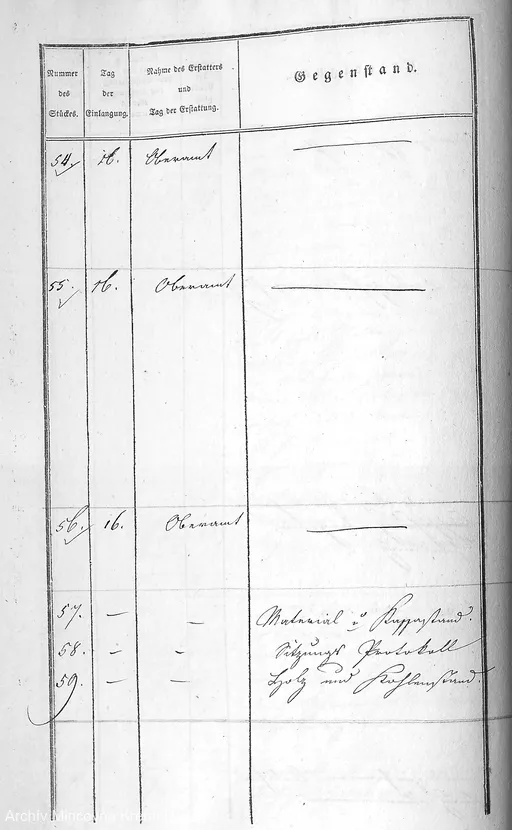 Nummer des Stückes.
Tag der Einlangung.
Nahme des Erstatters und Tag der Erstattung.
Gegenstand.
54. 16. Oberamt —
55. 16. Oberamt —
56. 16. Oberamt —
57. — — Material u Kassastand.
58. — — Sitzungs Protokoll
59. — — Holz und Kohlenstand.